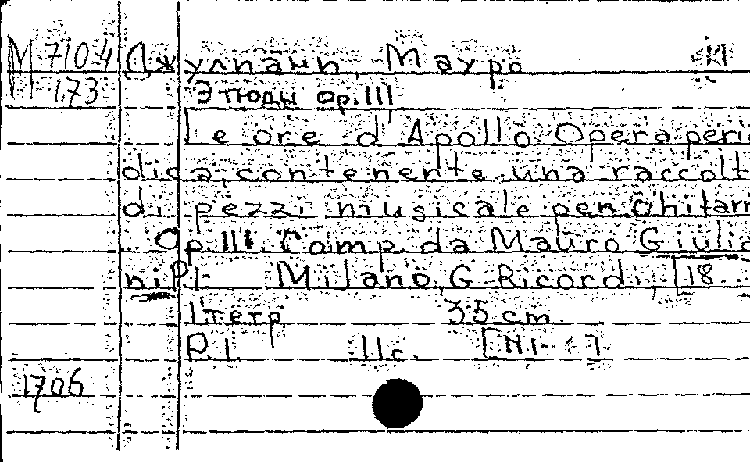 М 7104 Джулиани, Мауро И
М 173 Этюды op.111
Le ore d'Apollo. Opera perio
dica, contenente una raccolt
di pezzi musicale per Chitarr
Op.111. Comp. da Mauro Giulia
ni P.1. Milano, G. Ricordi, [18
1 тетр 35 cm
P.1. 11 с. [N1-
1706